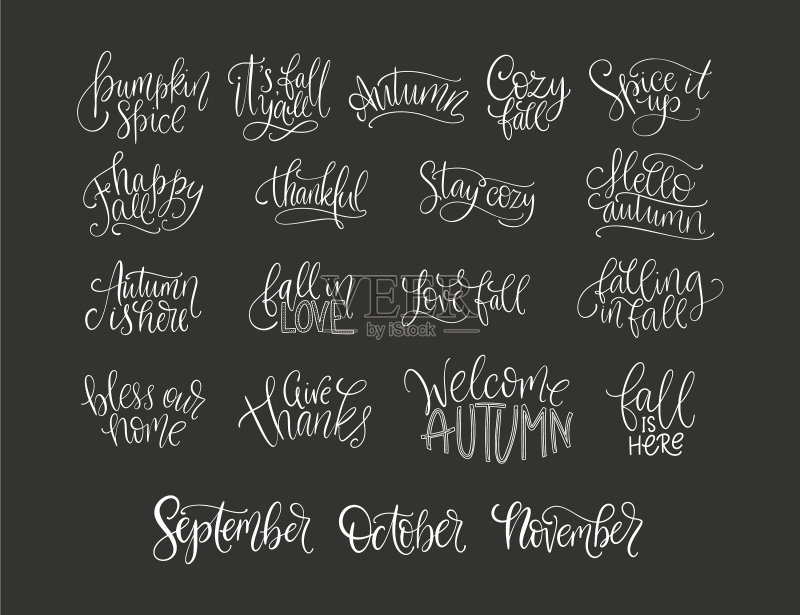 pumpkin
spice
it's fall
y'all
Autumn
Cozy
fall
Spice it
up
happy
fall
thankful
Stay cozy
Hello
autumn
Autumn
is here
fall in
LOVE
Love fall
falling
in fall
VEER
by iStock
bless our
home
Give
thanks
Welcome
AUTUMN
fall
IS
HERE
September October November